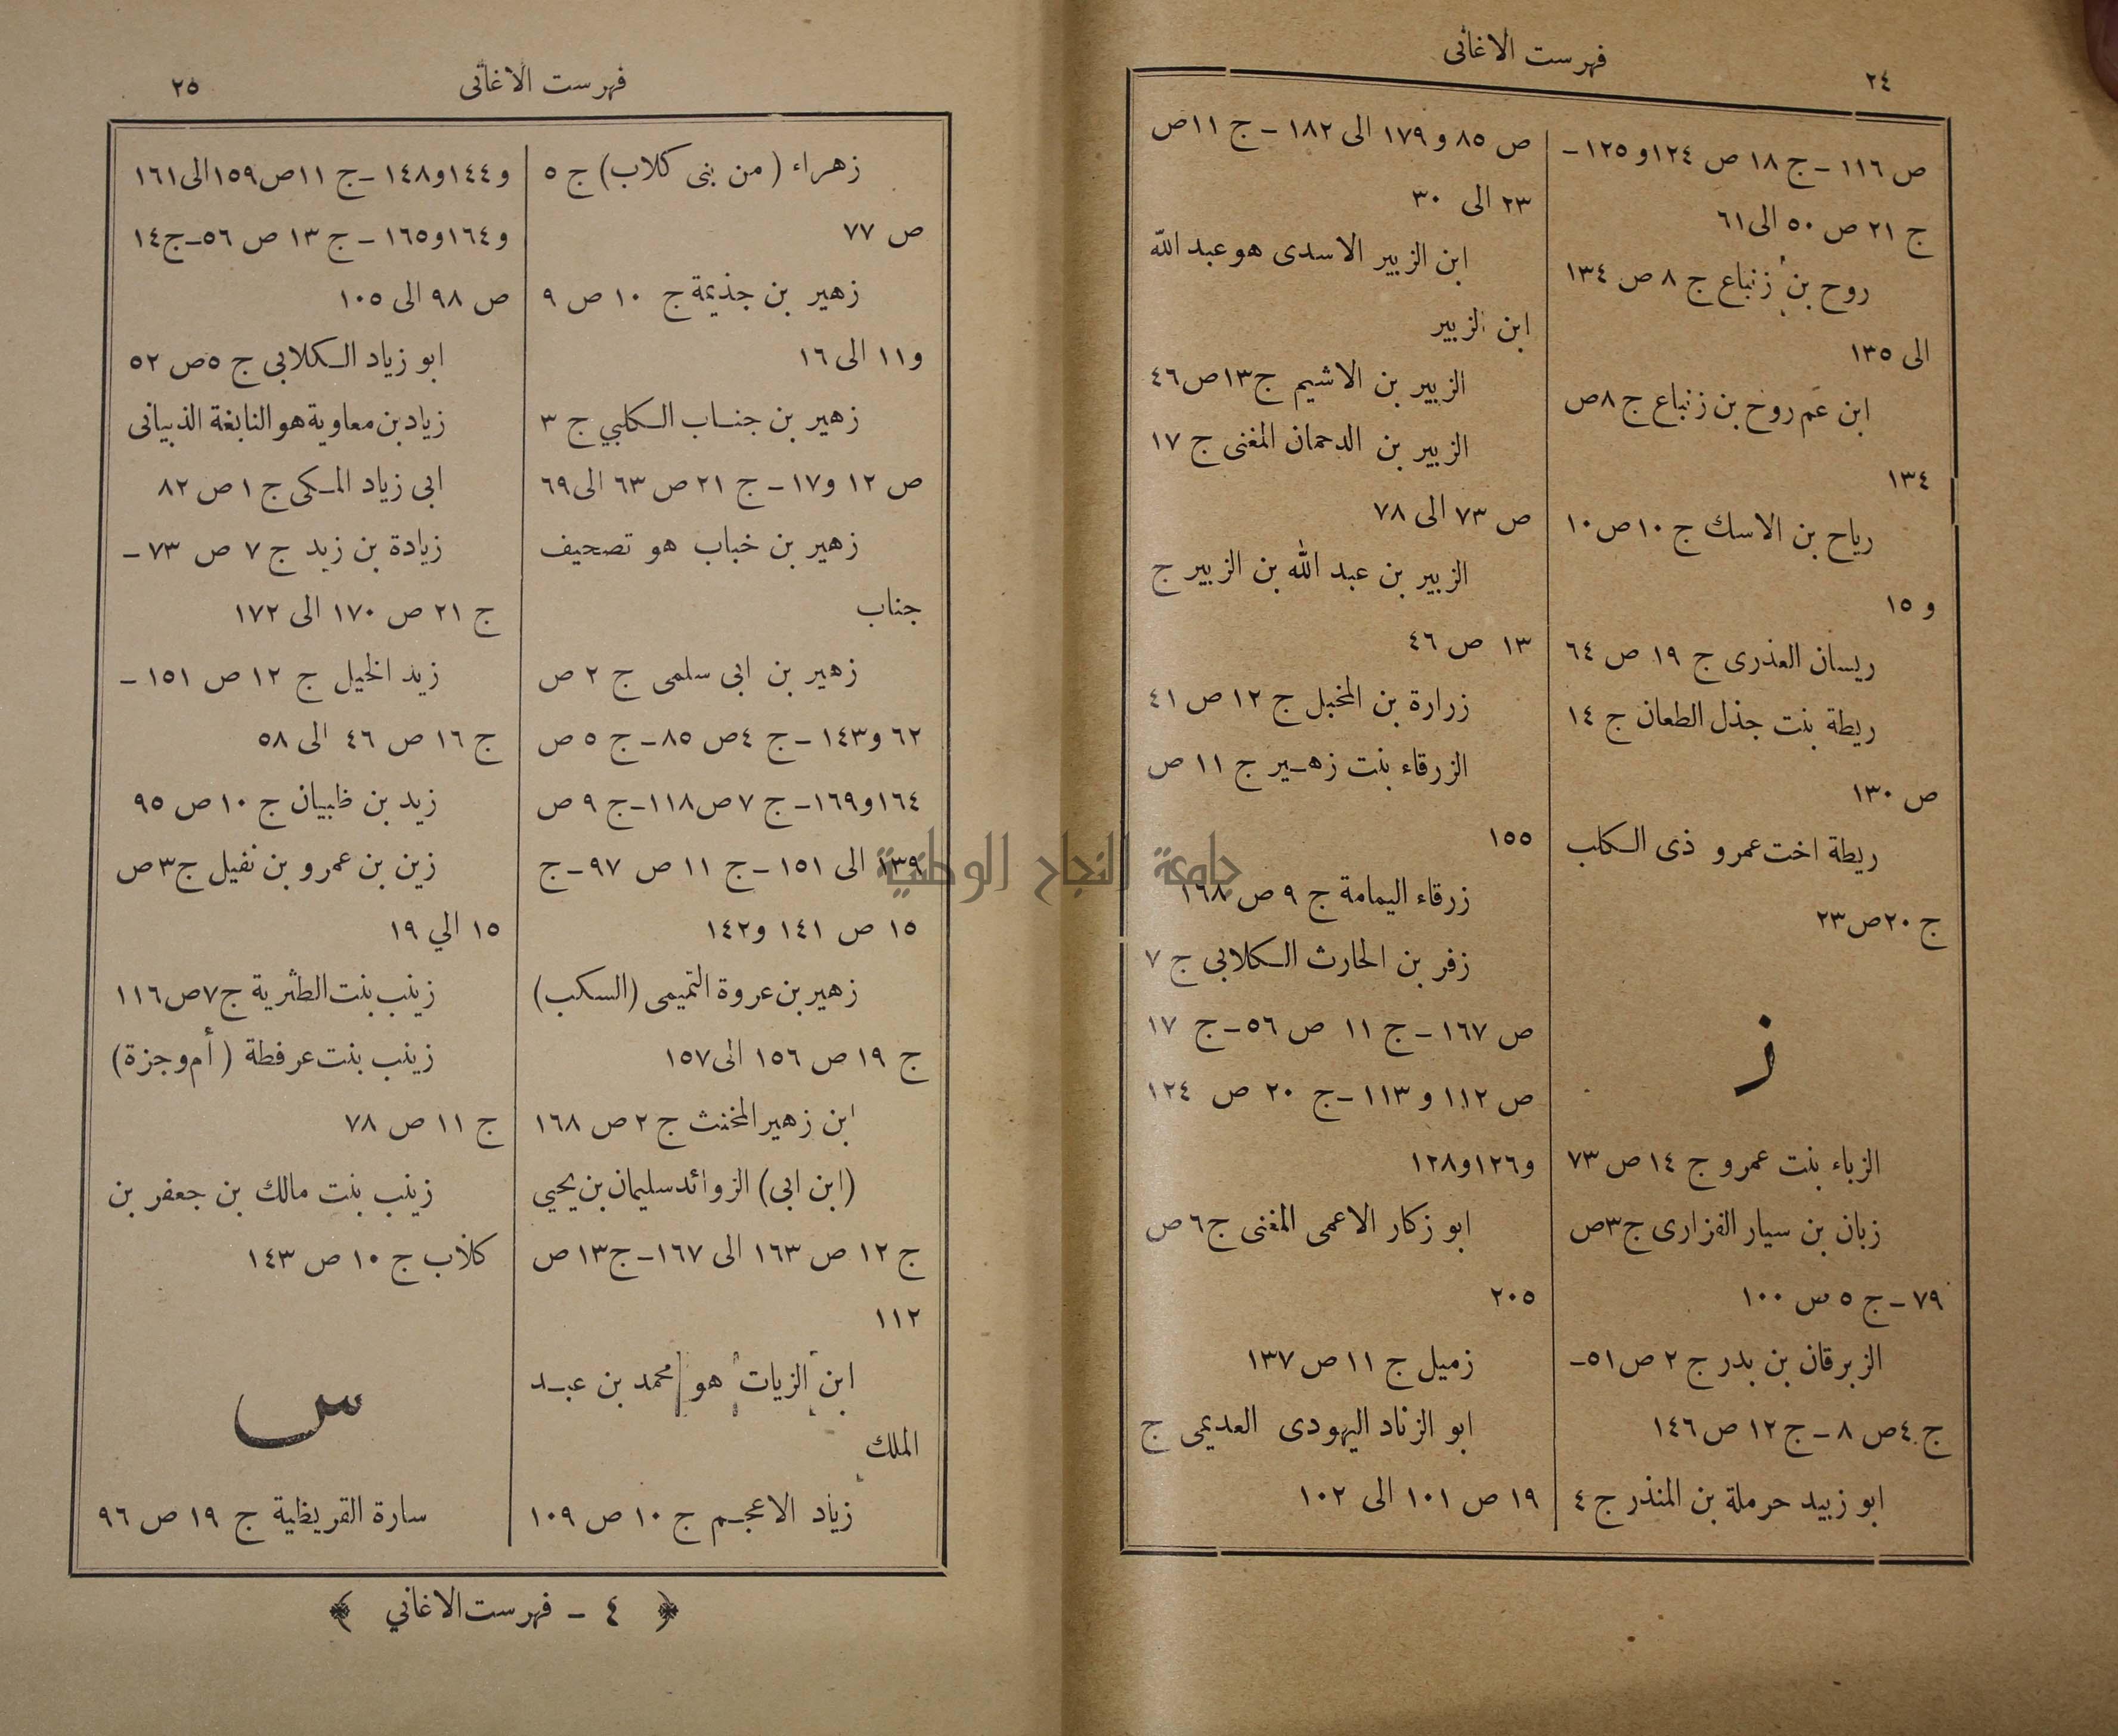 ٢٤
فهرست الاغانى
ص ١١٦ – ج ١٨ ص ١٢٤ و ١٢٥ –
ج ٢١ ص ٥٠ الى ٦١
روح بن زنباع ج ٨ ص ١٣٤
الى ١٣٥
ابن عم روح بن زنباع ج ٨ ص
١٣٤
رياح بن الاسك ج ١٠ ص ١٠
و ١٥
ريسان العذرى ج ١٩ ص ٦٤
ريطة بنت جذل الطعان ج ١٤
ص ١٣٠
ريطة اخت عمرو ذى الكلب
ج ٢٠ ص ٢٣
ز
الزباء بنت عمرو ج ١٤ ص ٧٣
زبان بن سيار الفزارى ج ٣ ص
٧٩ – ج ٥ ص ١٠٠
الزبرقان بن بدر ج ٢ ص ٥١ –
ج ٤ ص ٨ – ج ١٢ ص ١٤٦
ابو زبيد حرملة بن المنذر ج ٤
ص ٨٥ و ١٧٩ الى ١٨٢ – ج ١١ ص
٢٣ الى ٣٠
ابن الزبير الاسدى هو عبد الله
ابن الزبير
الزبير بن الاشيم ج ١٣ ص ٤٦
الزبير بن الدحمان المغنى ج ١٧
ص ٧٣ الى ٧٨
الزبير بن عبد الله بن الزبير ج
١٣ ص ٤٦
زرارة بن المخبل ج ١٢ ص ٤١
الزرقاء بنت زهير ج ١١ ص
١٥٥
زرقاء اليمامة ج ٩ ص ١٦٨
زفر بن الحارث الكلابى ج ٧
ص ١٦٧ – ج ١١ ص ٥٦ – ج ١٧
ص ١١٢ و ١١٣ – ج ٢٠ ص ١٢٤
و ١٢٦ و ١٢٨
ابو زكار الاعمى المغنى ج ٦ ص
٢٠٥
زميل ج ١١ ص ١٣٧
ابو الزناد اليهودى العديمى ج
١٩ ص ١٠١ الى ١٠٢
فهرست الاغانى
٢٥
زهراء (من بنى كلاب) ج ٥
ص ٧٧
زهير بن جذيمة ج ١٠ ص ٩
و ١١ الى ١٦
زهير بن جناب الكلبي ج ٣
ص ١٢ و ١٧ – ج ٢١ ص ٦٣ الى ٦٩
زهير بن خباب هو تصحيف
جناب
زهير بن ابى سلمى ج ٢ ص
٦٢ و ١٤٣ – ج ٤ ص ٨٥ – ج ٥ ص
١٦٤ و ١٦٩ – ج ٧ ص ١١٨ – ج ٩ ص
١٣٩ الى ١٥١ – ج ١١ ص ٩٧ – ج
١٥ ص ١٤١ و ١٤٢
زهير بن عروة التميمى (السكب)
ج ١٩ ص ١٥٦ الى ١٥٧
ابن زهير المخنث ج ٢ ص ١٦٨
(ابن ابى) الزوائد سليمان بن يحيي
ج ١٢ ص ١٦٣ الى ١٦٧ – ج ١٣ ص
١١٢
ابن الزيات هو محمد بن عبد
الملك
زياد الاعجم ج ١٠ ص ١٠٩
و ١٤٤ و ١٤٨ – ج ١١ ص ١٥٩ الى ١٦١
و ١٦٤ و ١٦٥ – ج ١٣ ص ٥٦ – ج ١٤
ص ٩٨ الى ١٠٥
ابو زياد الكلابى ج ٥ ص ٥٢
زياد بن معاوية هو النابغة الذبيانى
ابى زياد المكى ج ١ ص ٨٢
زيادة بن زيد ج ٧ ص ٧٣ –
ج ٢١ ص ١٧٠ الى ١٧٢
زيد الخيل ج ١٢ ص ١٥١ –
ج ١٦ ص ٤٦ الى ٥٨
زيد بن ظبيان ج ١٠ ص ٩٥
زين بن عمرو بن نفيل ج ٣ ص
١٥ الي ١٩
زينب بنت الطثرية ج ٧ ص ١١٦
زينب بنت عرفطة (أم وجزة)
ج ١١ ص ٧٨
زينب بنت مالك بن جعفر بن
كلاب ج ١٠ ص ١٤٣
س
سارة القريظية ج ١٩ ص ٩٦
﴿ ٤ – فهرست الاغاني ﴾
جامعة النجاح الوطنية